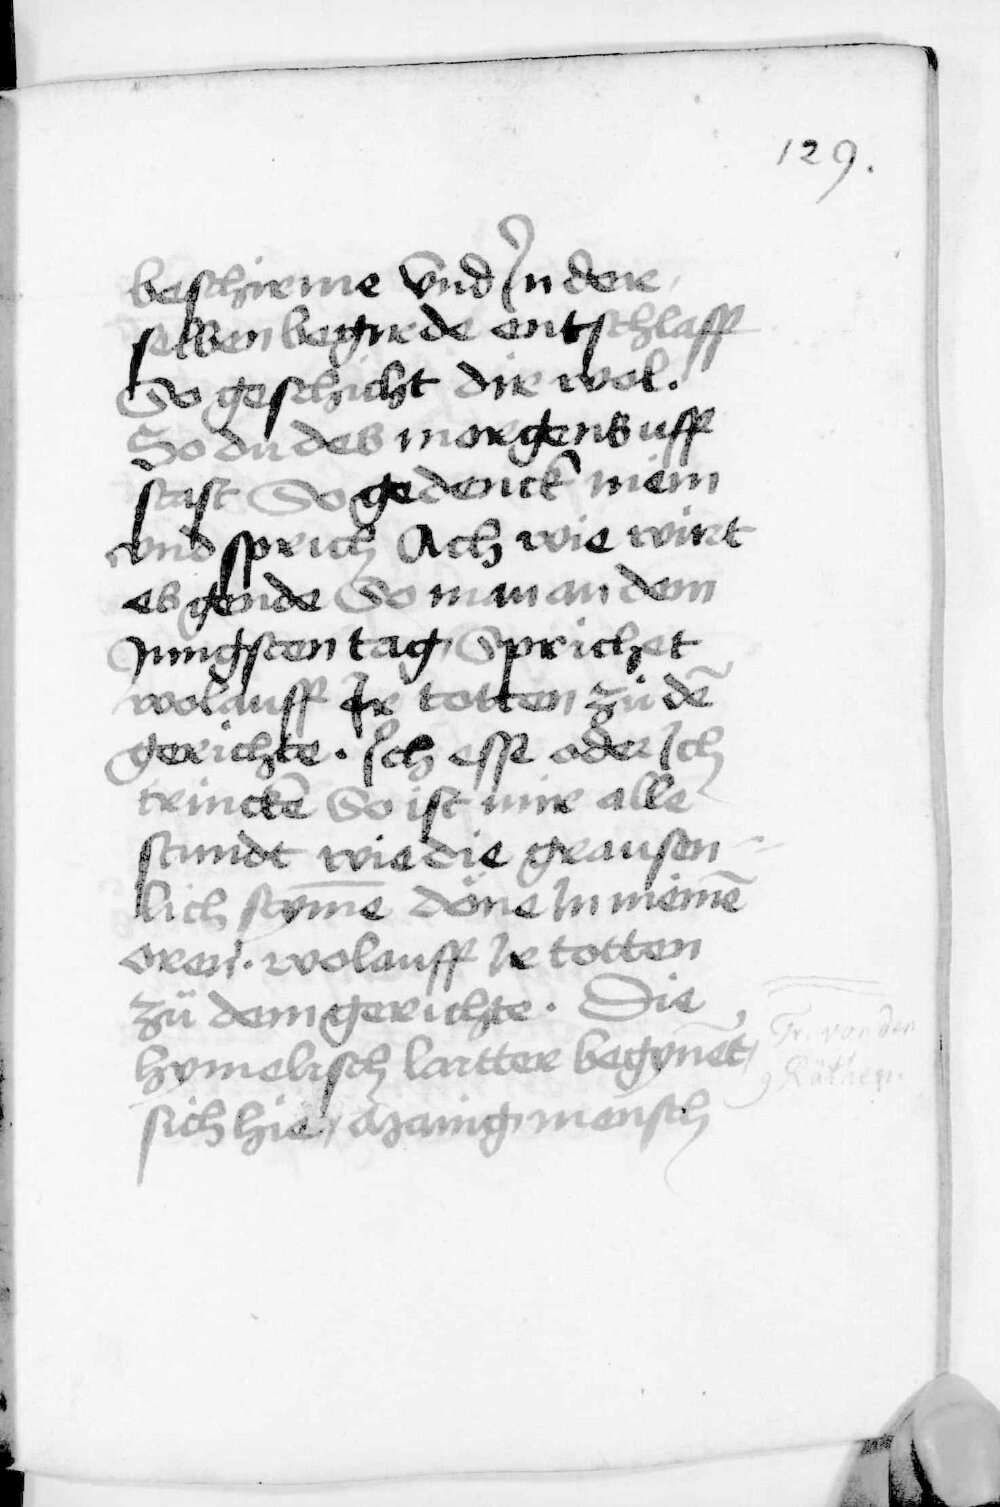 129.
beschirme Vnd In der
selben begirde entschlaff
So geschicht dir wol.
So du des morgens uff
stast So gedenck mein
vnd sprich Ach wie wirt
es gende So man an dem
Jungsten tag Sprichet
wolauff Ir totten zü dē
gerichte. Ich esse oder Ich
trinckē So ist mir alle
stundt wie die grausen
lich stym̄e döne In meinē
oren. wolauff Ir totten
Zü dem gerichte. Die
hymelisch laitter begynēt
sich hie, Maing mensch
Tr. von den
9 Räthen.